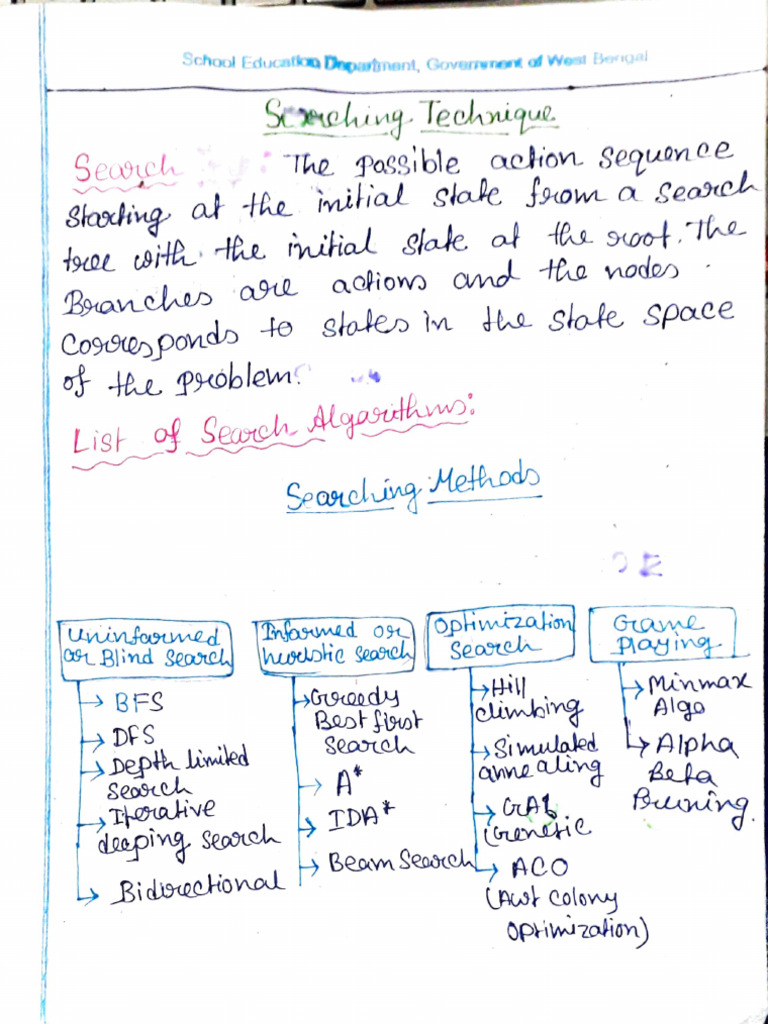 School Education Department, Government of West Bengal
Searching Technique
Search : The possible action sequence
starting at the initial state from a search
tree with the initial state at the root. The
Branches are actions and the nodes
corresponds to states in the state space
of the problem.
List of Search Algorithms:
Searching Methods
Uninformed
or Blind Search
→ BFS
→ DFS
→ Depth limited
search
→ Iterative
deeping search
→ Bidirectional
Informed or
heuristic search
→ Greedy
Best first
search
→ A*
→ IDA*
→ Beam Search
Optimization
Search
→ Hill
climbing
→ Simulated
annealing
→ GA
(Genetic
→ ACO
(Ant colony
optimization)
Game
Playing
→ Minmax
Algo
→ Alpha
Beta
Pruning.